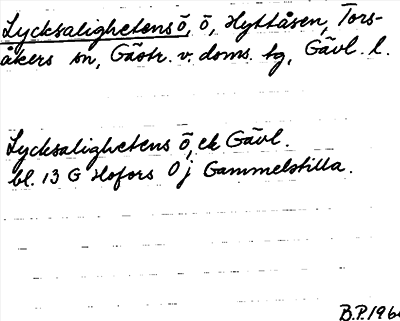 Lycksalighetens ö, ö, Hyttåsen, Tors-
åkers sn, Gästr. v. doms. tg, Gävl. l.
Lycksalighetens ö, ek Gävl.
bl. 13 G Hofors Ö j Gammelstilla.
B.P. 196